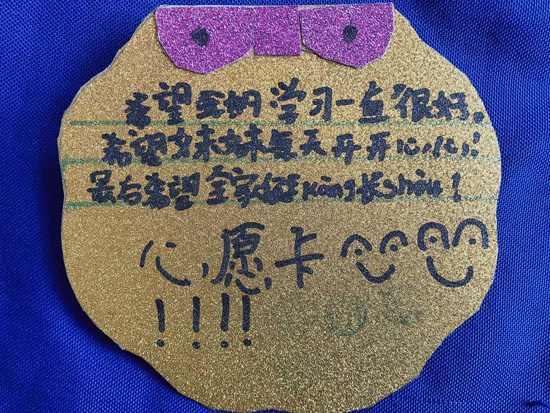 希望我的学习一直很好。
希望妹妹每天开开心心！
最后希望全家健kāng长shòu！
心愿卡
！！！！